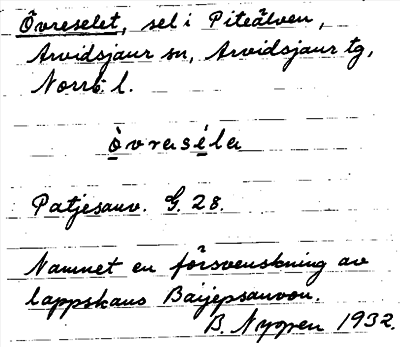 Övreselet, sel i Piteälven,
Arvidsjaur sn, Arvidsjaur tg,
Norrb. l.
òvraséla
Patjesauv. G. 28.
Namnet en försvenskning av
lappskans Baijepsauvon.
B. Nyopen 1932.